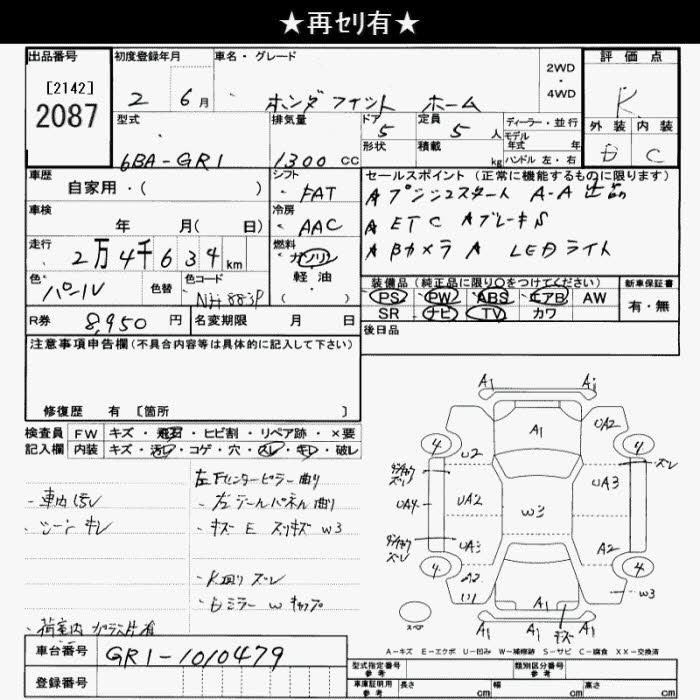 ★再セリ有★
出品番号
[2142]
2087
初度登録年月
2 6月
車名・グレード
ホンダ フィット ホーム
2WD
・
4WD
評価点
R
外装 内装
D C
型式
6BA-GR1
排気量
1300 cc
ドア
5
定員
5 人
形状
積載
kg
ディーラー・並行
モデル
年式 年
ハンドル 左・右
車歴
自家用・( )
シフト
FAT
セールスポイント (正常に機能するものに限ります)
A プッシュスタート A-A
A ETC Aブレーキ
A Bカメラ A LEDライト
車検
年 月( 日)
冷房
AAC
走行
2万4千634km
燃料
ガソリン
軽・油
・( )
色・
パール
色替
色コード
NH883P
装備品 (純正品に限り○をつけてください)
PS PW ABS エアB AW
SR ナビ TV カワ
新車保証書
有・無
R券 8,950 円
名変期限 月 日
後日品
注意事項申告欄 (不具合内容等は具体的に記入して下さい)
修復歴 有 [箇所 ]
検査員
記入欄
FW キズ・飛石・ヒビ割・リペア跡・×要
内装 キズ・汚レ・コゲ・穴・スレ・キレ・破レ
左Fセンターピラー曲り
・車内汚レ
・左テールパネル曲り
・シート キレ
・キズ E スリキズ W3
・ズレ
・ミラー W キャップ
・荷室内 ガラス片有
A1 A1
A1
UA2
4 4
U2
ズレ
UA4
UA2
W3
UA3
UA3
A2
4 4
A2
W3
A1
A1 A1 キズ
スペア
A-キズ E-エクボ U-凹み W-補修跡 S-サビ C-腐食 XX-交換済
車台番号
GR1-1010479
登録番号
型式指定番号
参考
類別区分番号
参考
車庫証明用
参考
長さ cm
幅 cm
高さ cm